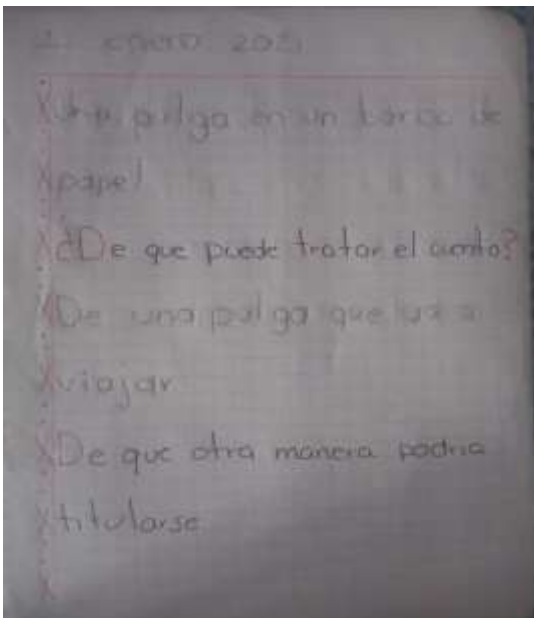 enero 20
Una pulga en un barco de
papel
¿De que puede tratar el cuento?
De una pulga que va a
viajar
De que otra manera podria
titularse